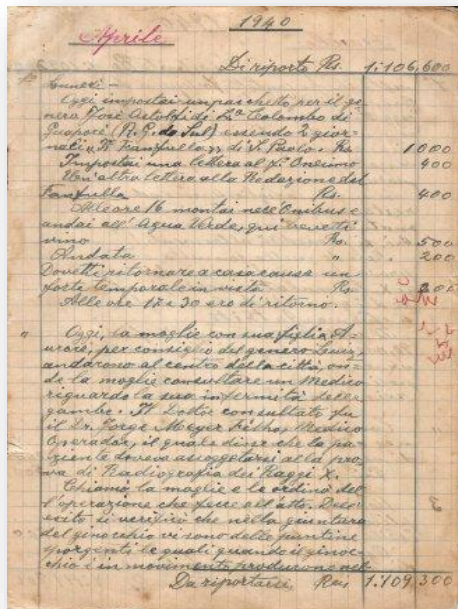 1940
Aprile
Di riporto Rs. 1:106,600
Lunedi –
Oggi impostai un pacchetto per il ge-
nero José Astolfi di Sta Colombo di
Guaporé (R. G. do Sul) essendo 2 gior-
nali „Il Fanfulla„ di S. Paolo. Rs. 1000
Impostai una lettera al Onesimo 400
Un'altra lettera alla Redazione del
Fanfulla Rs. 400
Alle ore 16 montai nell'Omnibus e
andai all'Agua Verde, qui bevetti
vino Rs. 500
Andata " 200
Dovetti ritornare a casa causa un
forte temporale in vista Rs. 200
Alle ore 17 e 30 ero di ritorno.
" Oggi, la moglie con sua figlia, A-
urora, per consiglio del genero Louis,
andarono al centro della città, on-
de la moglie consultare un Medico
riguardo la sua infermità delle
gambe. Il Dottor consultato fu
il Dr. Jorge Meyer Filho, Medico
Operador, il quale disse che la pa-
ziente doveva assoggetarsi alla pro-
va di Radiografia dei Raggi X.
Chiamò la moglie e le ordinò del
l'operazione che fece all'atto.
esito si verificò che nella giuntura
del ginocchio vi sono delle puntine
sporgenti le quali quando il ginoc-
chio è in movimento producono
Da riportarsi, Reis 1:109,300